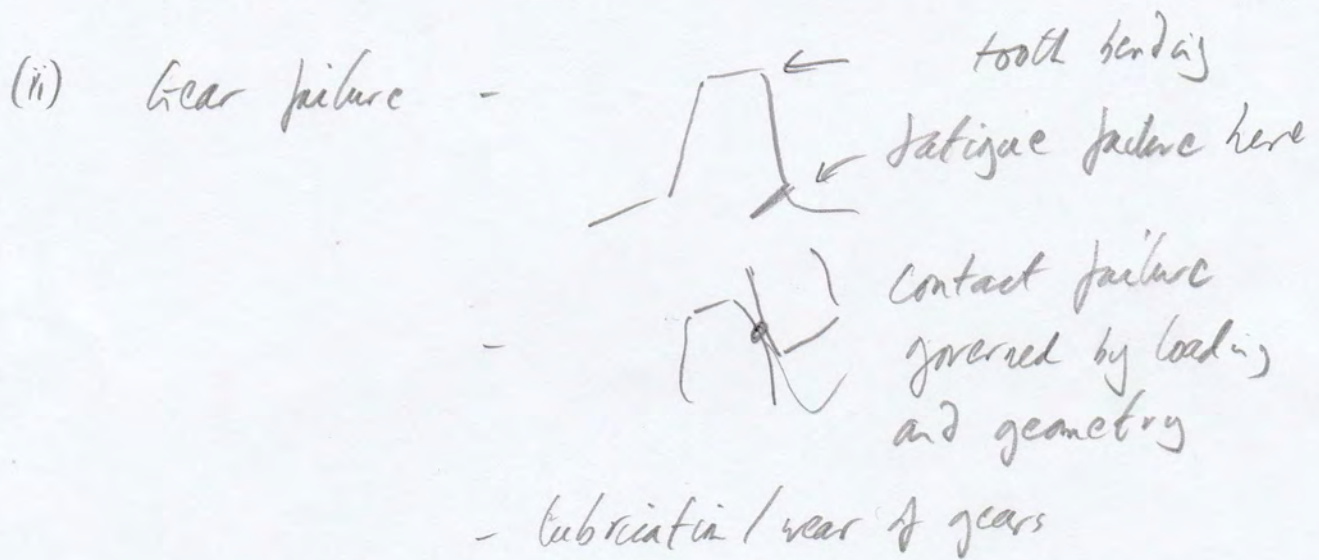 (ii) Gear failure - tooth bending
fatigue failure here
- contact failure
governed by loading
and geometry
- lubricatin / wear of gears